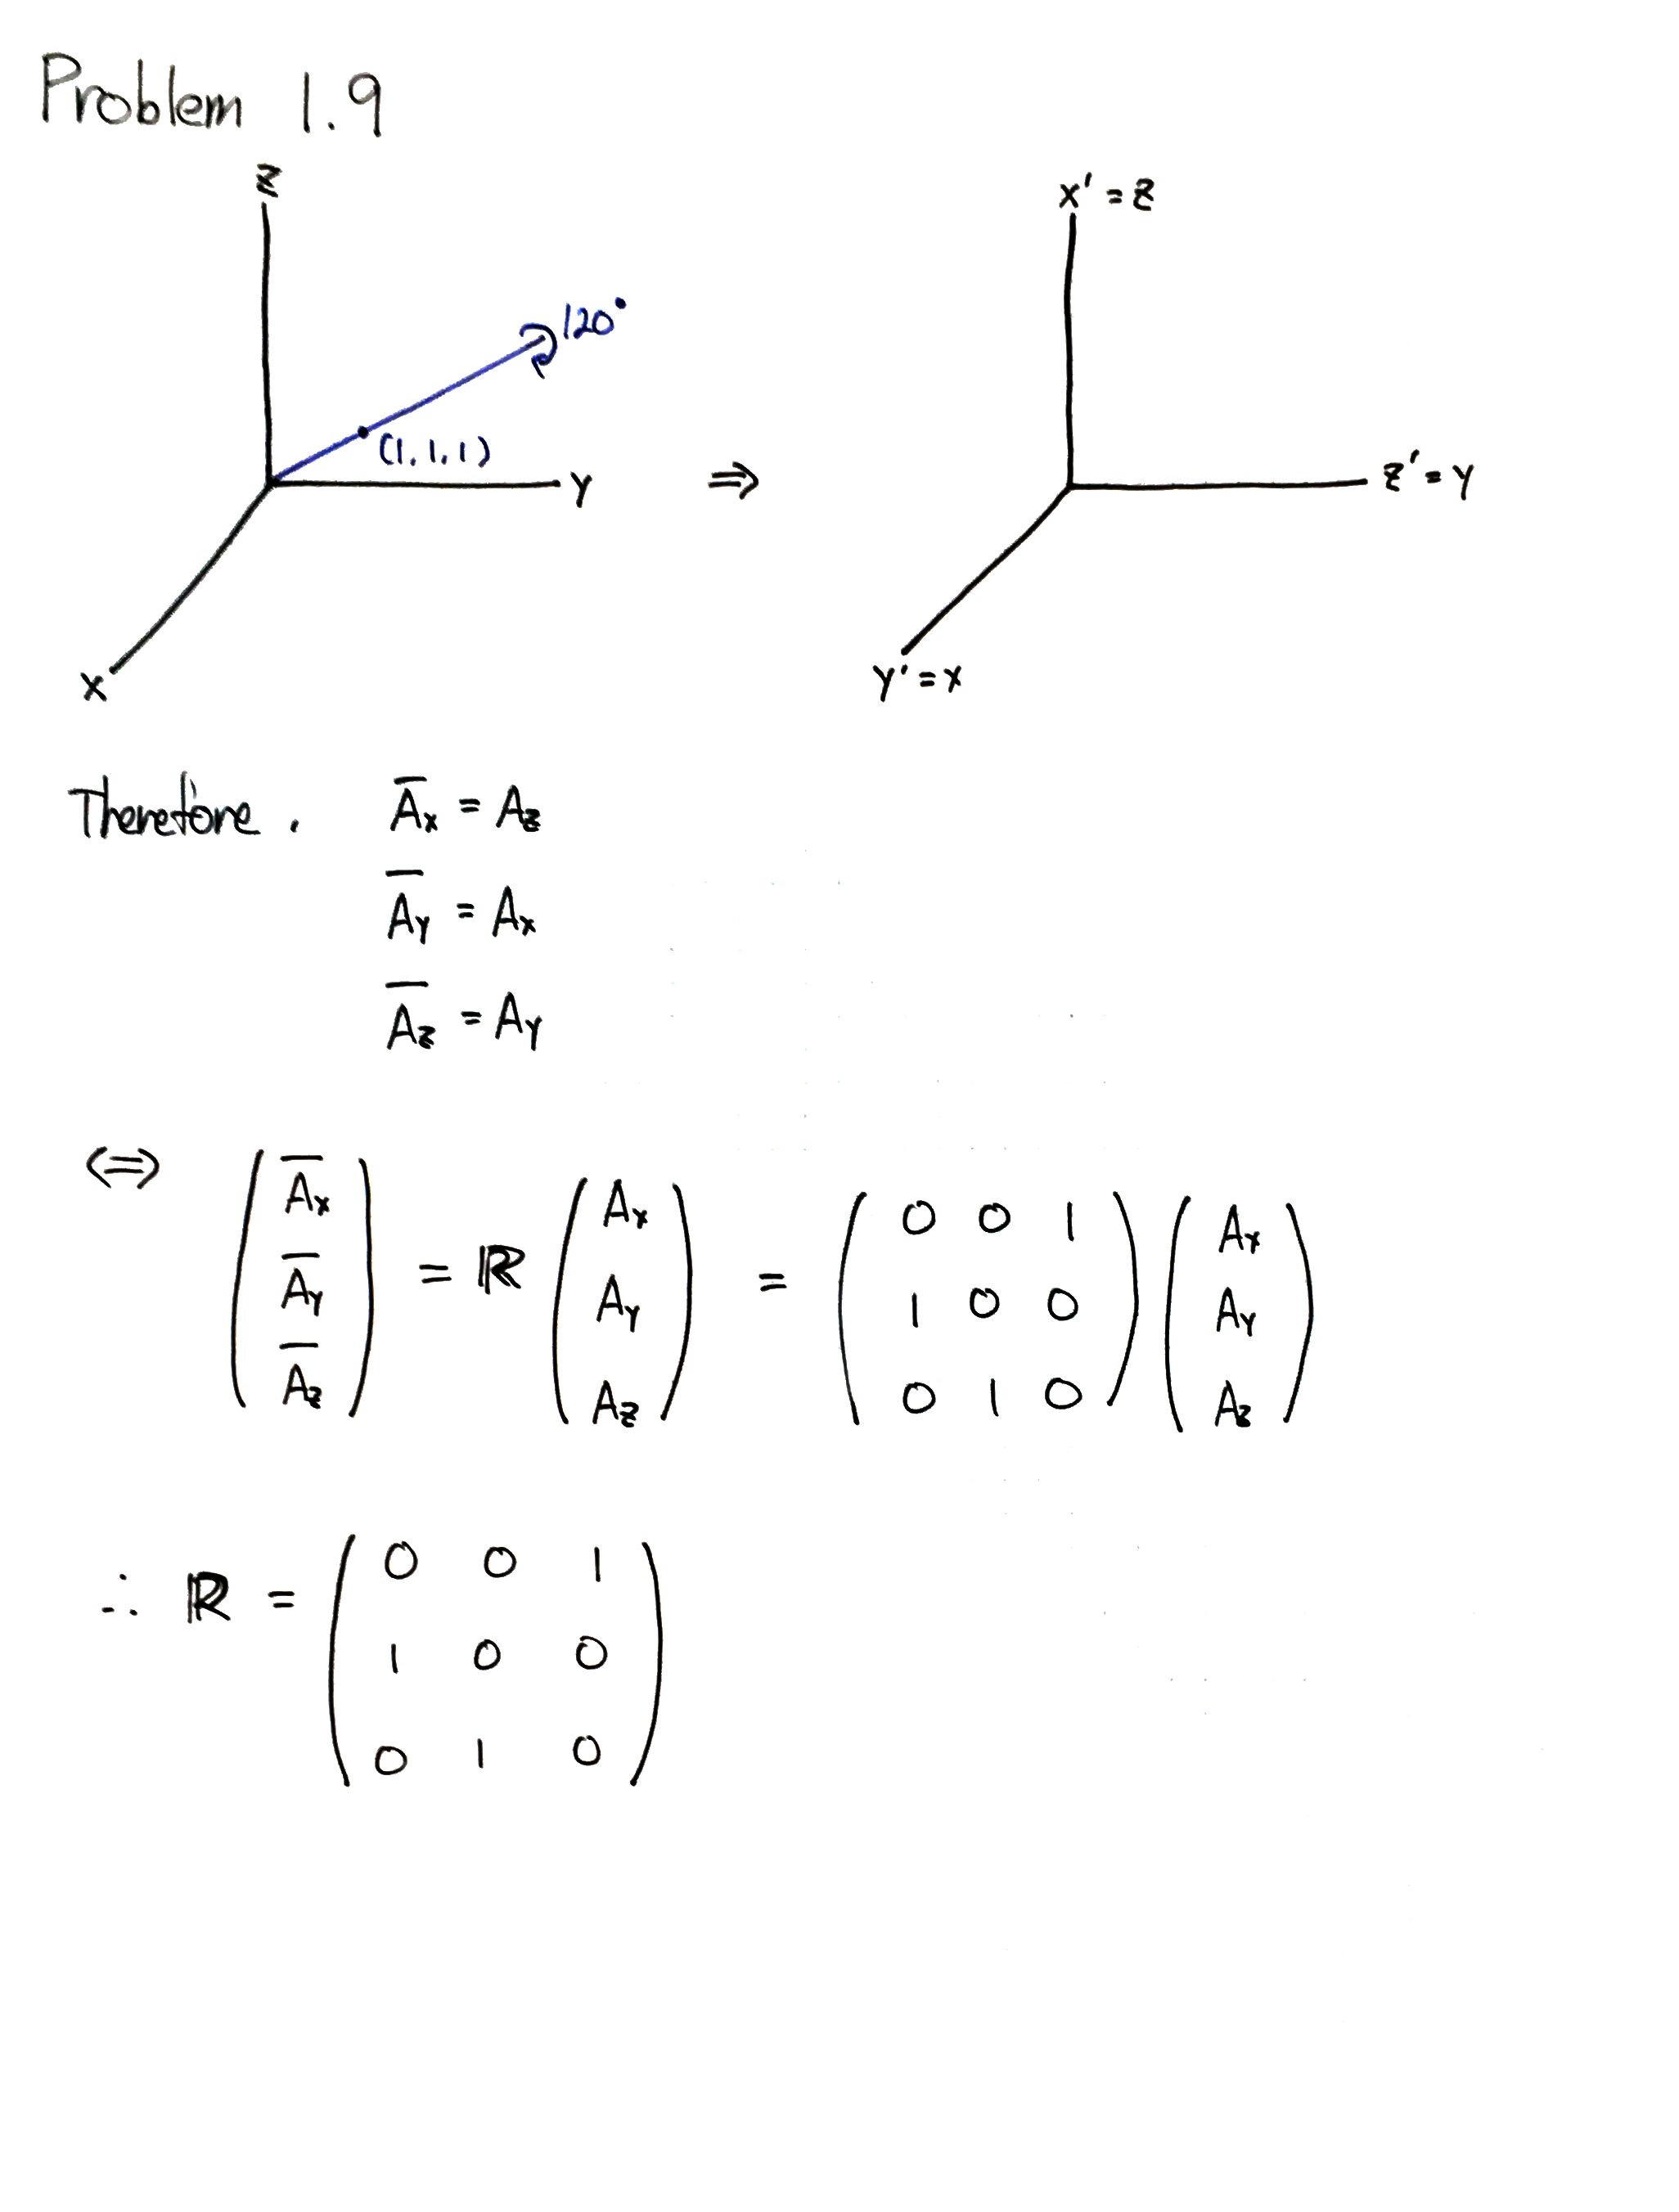 Problem 1.9
z
x' = z
120°
(1, 1, 1)
y
⇒
z' = y
x
y' = x
Therefore, A̅x = Az
A̅y = Ax
A̅z = Ay
⇔ ( A̅x A̅y A̅z ) = ℝ ( Ax Ay Az ) = ( 0 0 1 1 0 0 0 1 0 ) ( Ax Ay Az )
∴ ℝ = ( 0 0 1
1 0 0
0 1 0 )